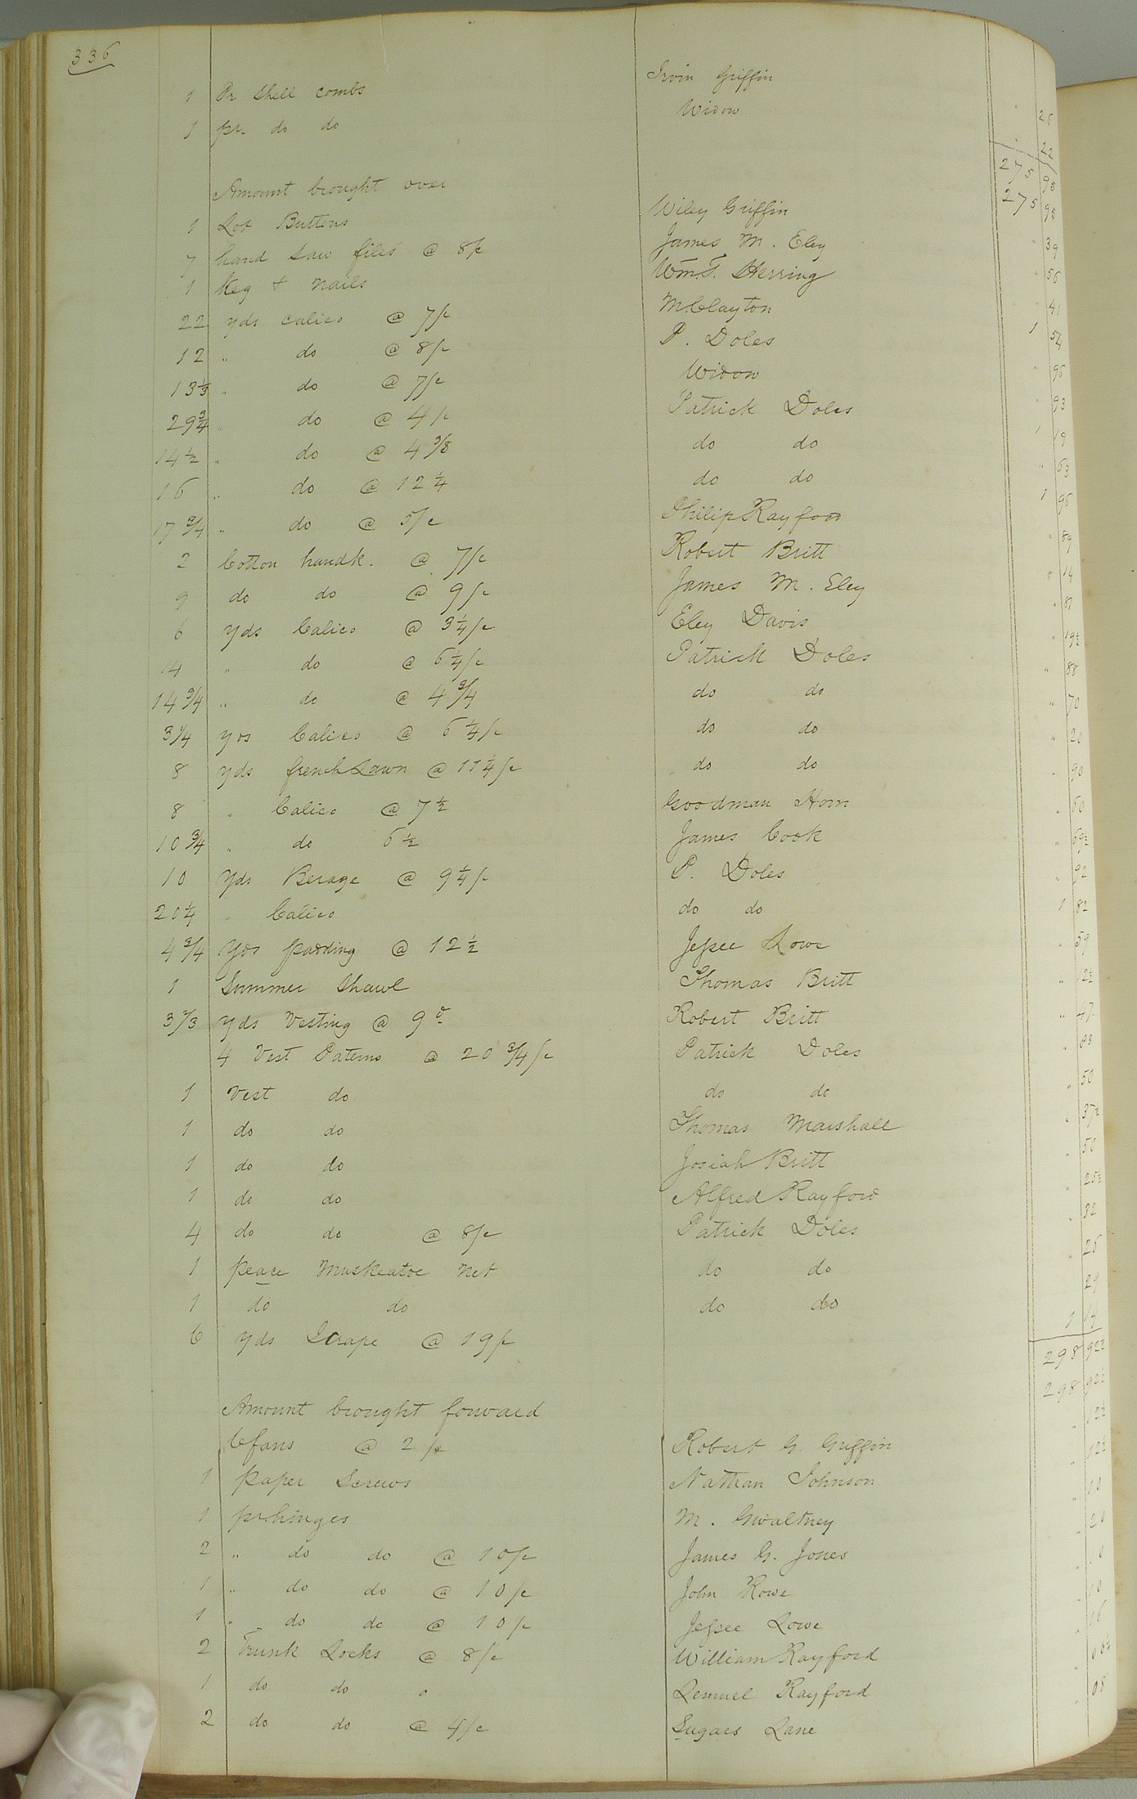 336
1 Pr Shell combs Irvin Griffin 25
1 pr. do do Widow 22
275 98
Amount brought over 275 98
1 Lot Buttons Wiley Griffin 39
7 hand Saw files @ 8/c James M. Eley 56
1 Keg & nails Wm. T. Herring 41
22 yds calico @ 7/c M. Clayton 1 54
12 " do @ 8/c P. Doles 96
13 1/3 " do @ 7/c Widow 93
29 3/4 " do @ 4/c Patrick Doles 1 19
14 1/2 " do @ 4 3/8 do do 63
16 " do @ 12 1/4 do do 1 96
17 3/4 " do @ 5/c Philip Rayford 89
2 Cotton handk. @ 7/c Robert Britt 14
9 do do @ 9/c James M. Eley 81
6 yds Calico @ 3 1/4/c Eley Davis 19 1/2
14 " do @ 6 1/4/c Patrick Doles 88
14 3/4 " do @ 4 3/4 do do 70
3 1/4 yds Calico @ 6 1/4/c do do 20
8 yds french Lawn @ 11 1/4/c do do 90
8 " Calico @ 7 1/2 Goodman Horn 60
10 3/4 " do 6 1/2 James Cook 69 1/2
10 Yds Berage @ 9 1/4/c P. Doles 92
20 1/4 " Calico do do 1 82
4 3/4 Yds padding @ 12 1/2 Jessee Lowe 59
1 Summer Shawl Thomas Britt 12 1/2
yds Vesting @ 9 c Robert Britt
4 Vest Paterns @ 20 3/4/c Patrick Doles 83
1 Vest do do do 50
1 do do Thomas Marshall 37 1/2
1 do do Josiah Britt 50
1 do do Alfred Rayford 25 1/2
4 do do @ 8/c Patrick Doles 32
1 peace Muskeatoe Net do do 25
1 do do do do 29
6 yds Scrape @ 19/c 1 14
298 92 1/2
Amount brought forward 298 92 1/2
6 fans @ 2/c Robert G. Griffin 12 1/2
1 paper Screws Nathan Johnson 12 1/2
1 pr hinges M. Gwaltney 10
2 " do do @ 10/c James G. Jones 20
1 " do do @ 10/c John Rowe
1 " do do @ 10/c Jessee Lowe 10
2 Trunk Locks @ 8/c William Rayford 16
1 do do Lemuel Rayford
2 do do @ 4/c Sugars Lane 08